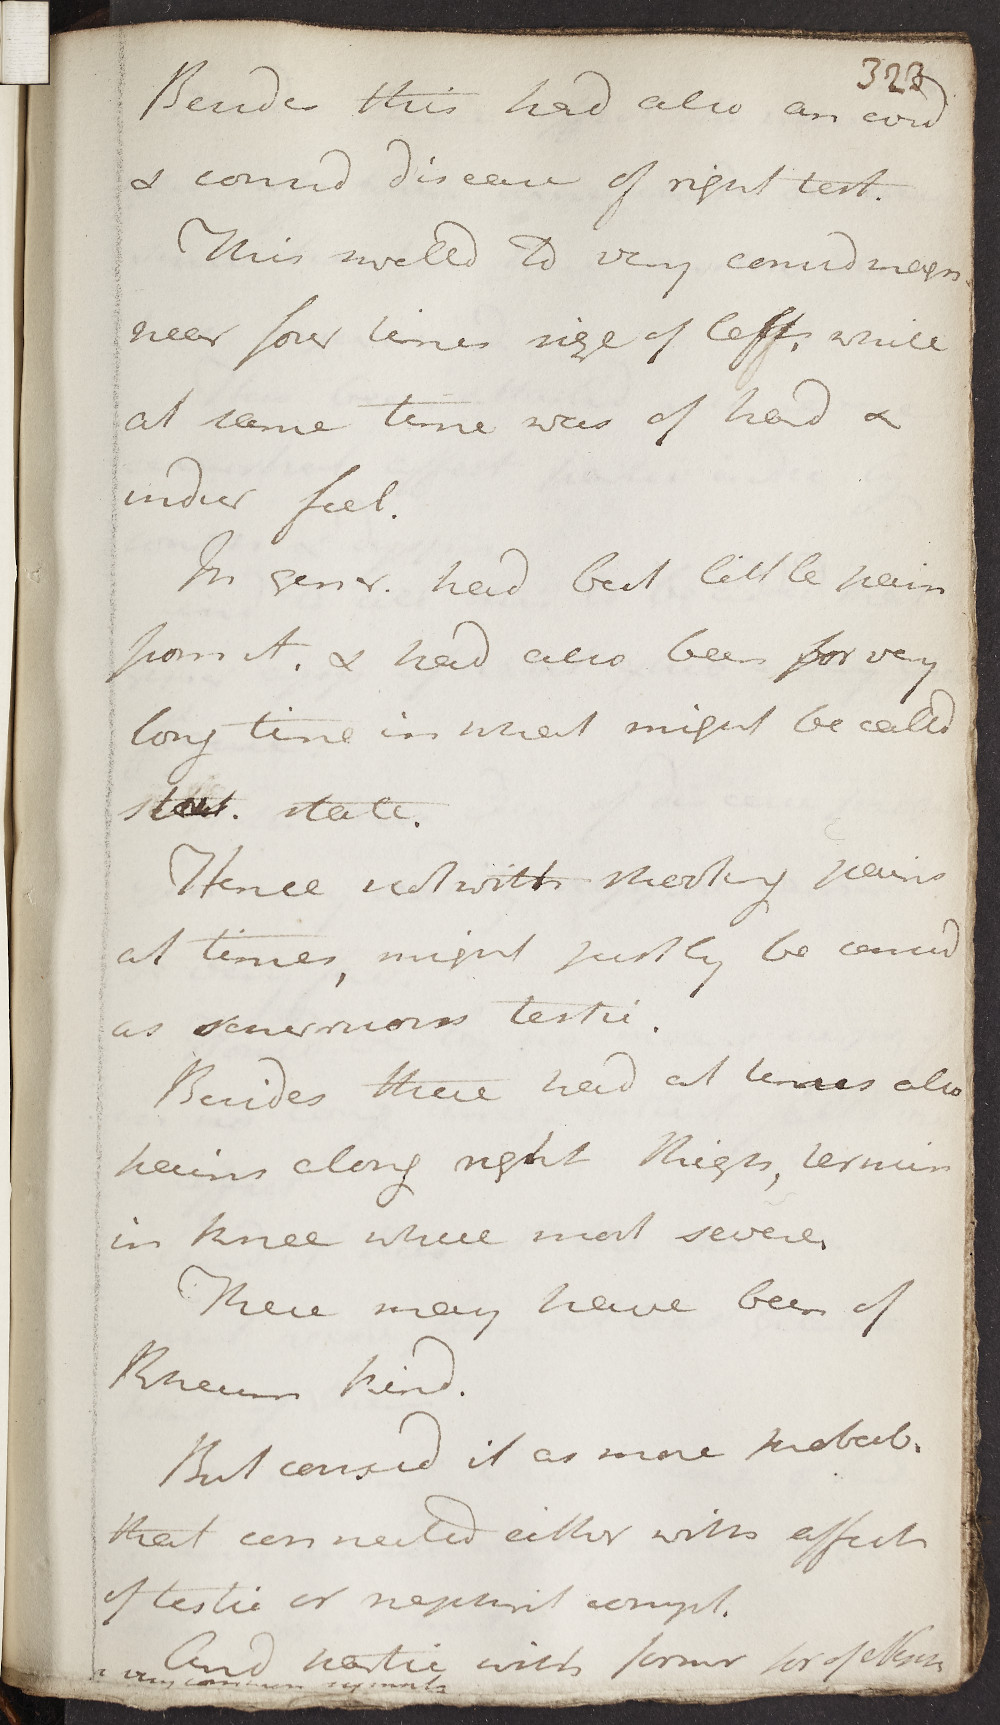 323
Besides this had also an evid
& consid disease of right test.
This swelled to very consid magn
near four times size of left, while
at same time was of hard &
indur feel.
In gener. had but little pain
from it, & had also been for very
long time in what might be called
stat. state.
Hence notwith shooting pains
at times, might justly be consid
as schirrous testic.
Besides these had at times also
pains along right thigh, termin
in knee where most severe.
These may have been of
Rheum kind.
But consid it as more probab.
that connected either with affect
of testic or nephrit compl.
And partic with former for of these
a very common sympt